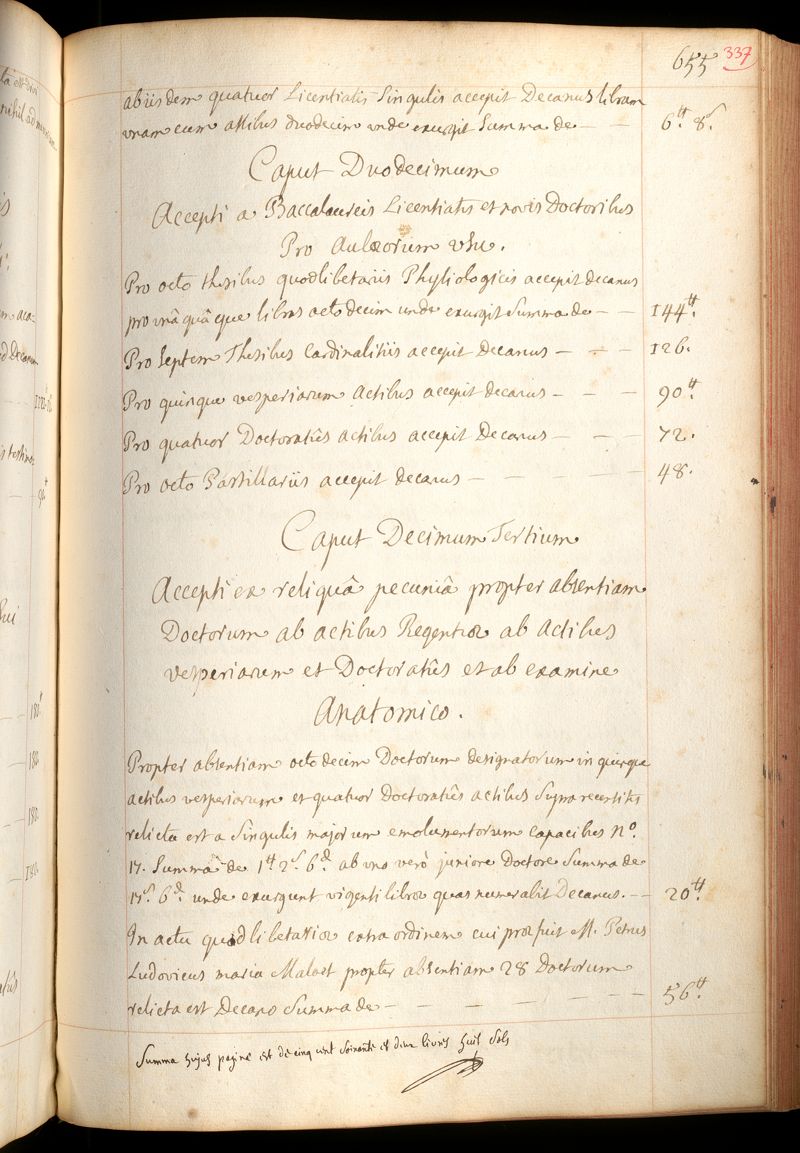 655 337
ab iisdem quatuor Licentiatis Singulis accepit Decanus libram
unam cum assibus duodecim unde exurgit Summa de — — 6.tt 8.s
Caput Duodecimum
Accepti a Baccalaureis Licentiatis et novis Doctoribus
Pro Aulæorum usu.
Pro octo thesibus quodlibetariis Physiologicis accepit decanus
pro unâ quâque libras octodecim unde exurgit Summa de — — 144.tt
Pro septem Thesibus Cardinalitiis accepit Decanus — — — 126.
Pro quinque vesperiarum Actibus accepit decanus — — — 90.tt
Pro quatuor Doctoratûs actibus accepit Decanus — — — 72.
Pro octo Pastillariis accepit decanus — — — — — 48.
Caput Decimum Tertium
Accepti ex reliquâ pecuniâ propter absentiam
Doctorum ab actibus Regentiæ ab Actibus
vesperiarum et Doctoratûs et ab examine
Anatomico.
Propter absentiam octodecim Doctorum designatorum in quinque
actibus vesperiarum et quatuor Doctoratûs actibus Supra recensitis
relicta est a Singulis majorum emolumentorum capacibus No.
17. Summa de 1.tt 2.s 6.d ab uno verò juniore Doctore Summa de
17.s 6.d unde exurgunt viginti libræ quas numerabit Decanus. — — 20.tt
In actu quodlibetario extra ordinem cui præfuit M. Petrus
Ludovicus maria Maloet propter absentiam 28 Doctorum
relicta est Decano Summa de — — — — — — 56.tt
Summa hujus paginæ est de cinq cent soixante et deux livres huit sols